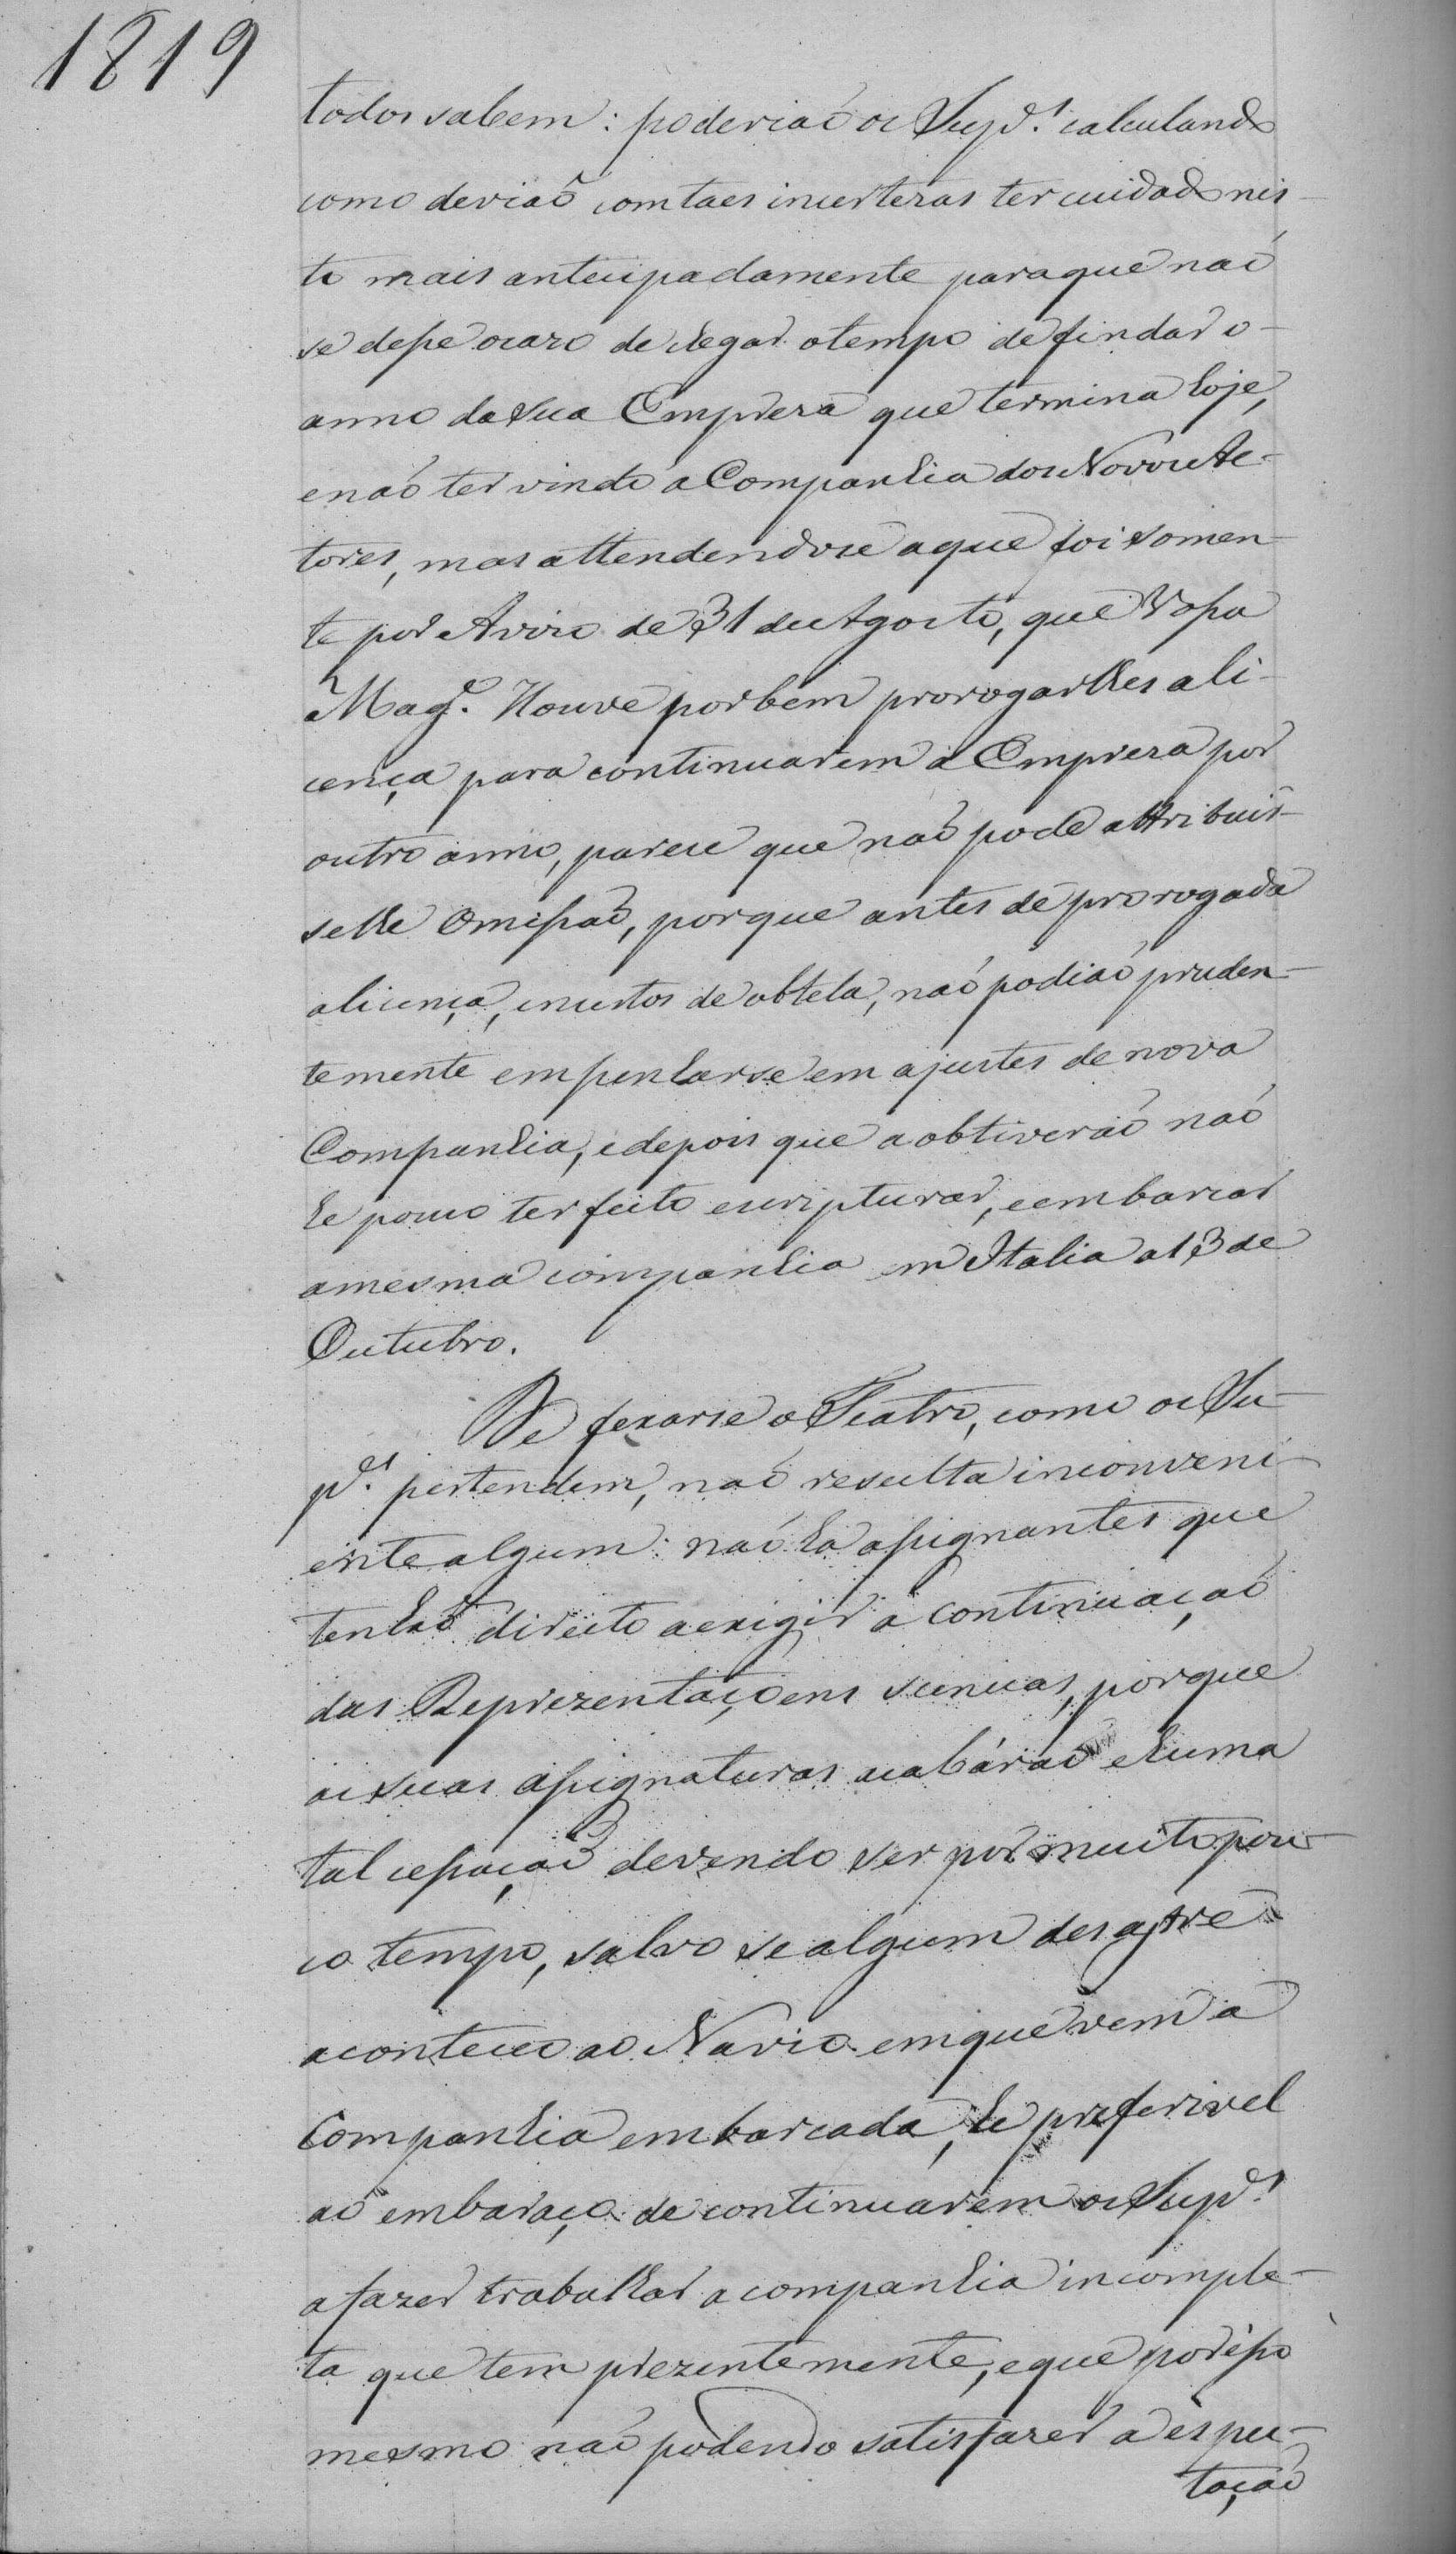 1819
todos sabem: poderiaõ os Supd.es calculando
como deviaõ com taes incertezas ter cuidado nis-
to mais antecipadamente para que naõ
se desse o cazo de chegar o tempo de findar o
anno da sua Empreza que termina hoje,
e naõ ter vindo a Companhia dos Novos Ac-
tores, mas attendendose a que foi somen-
te por Avizo de 31 de Agosto, que Vossa
Mag.e Houve por bem prorogarlhes a li-
cença para continuarem a Empreza por
outro anno, parece que naõ pode attribuir-
selhe Omissaõ, porque antes de prorogada
a licença, incertos de obtela, naõ podiaõ pruden-
temente empenharse em ajustes de nova
Companhia, e depois que a obtiveraõ naõ
he pouco ter feito escripturar, e embarcar
a mesma companhia em Italia a 13 de
Outubro.
De fexarse o Theatro, como os Su-
pd.es pertendem, naõ resulta inconveni-
ente algum: naõ ha assignantes que
tenhaõ direito a exigir a continuaçaõ
das Reprezentaçoens scenicas, porque
as suas assignaturas acabáraõ e huma
tal cessaçaõ devendo ser por muito pou-
co tempo, salvo se algum desastre
aconteceo ao Navio em que vem a
Companhia embarcada, he preferivel
ao embaraço de continuarem os Supd.es
a fazer trabalhar a companhia incomple-
ta que tem prezentemente, e que por isso
mesmo naõ podendo satisfazer a espec-
taçaõ